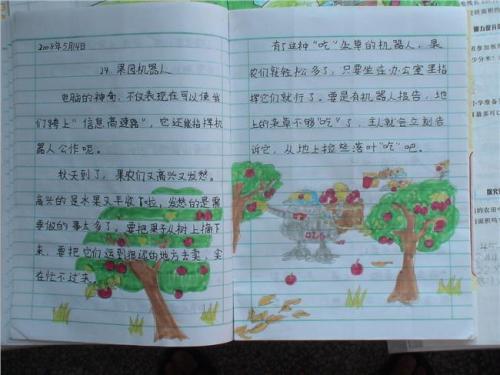 2008年5月14日
24. 果园机器人
电脑的神奇,不仅表现在可以使我
们跨上"信息高速路",它还能指挥机
器人公作呢。
秋天到了,果农们又高兴又发愁。
高兴的是水果又丰收了啦,发愁的是需
要做的事太多了,要把果子从树上摘下
来,要把它们运到很远的地方去卖,实
在忙不过来。
有了这种"吃"杂草的机器人,果
农们就轻松多了,只要坐在办公室里指
挥它们就行了。要是有机器人报告,地
上的杂草不够"吃"了,主人就会立刻告
诉它,从地上捡些落叶"吃"吧。